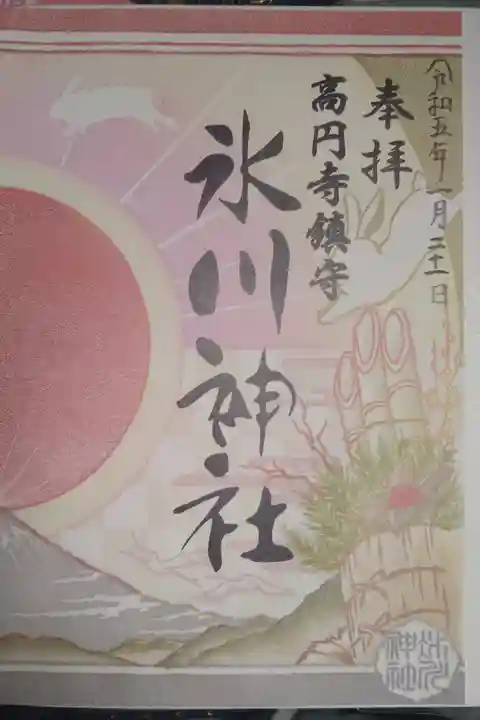 令和五年一月二十一日
奉拝
高円寺鎮守
氷川神社
氷川
神社